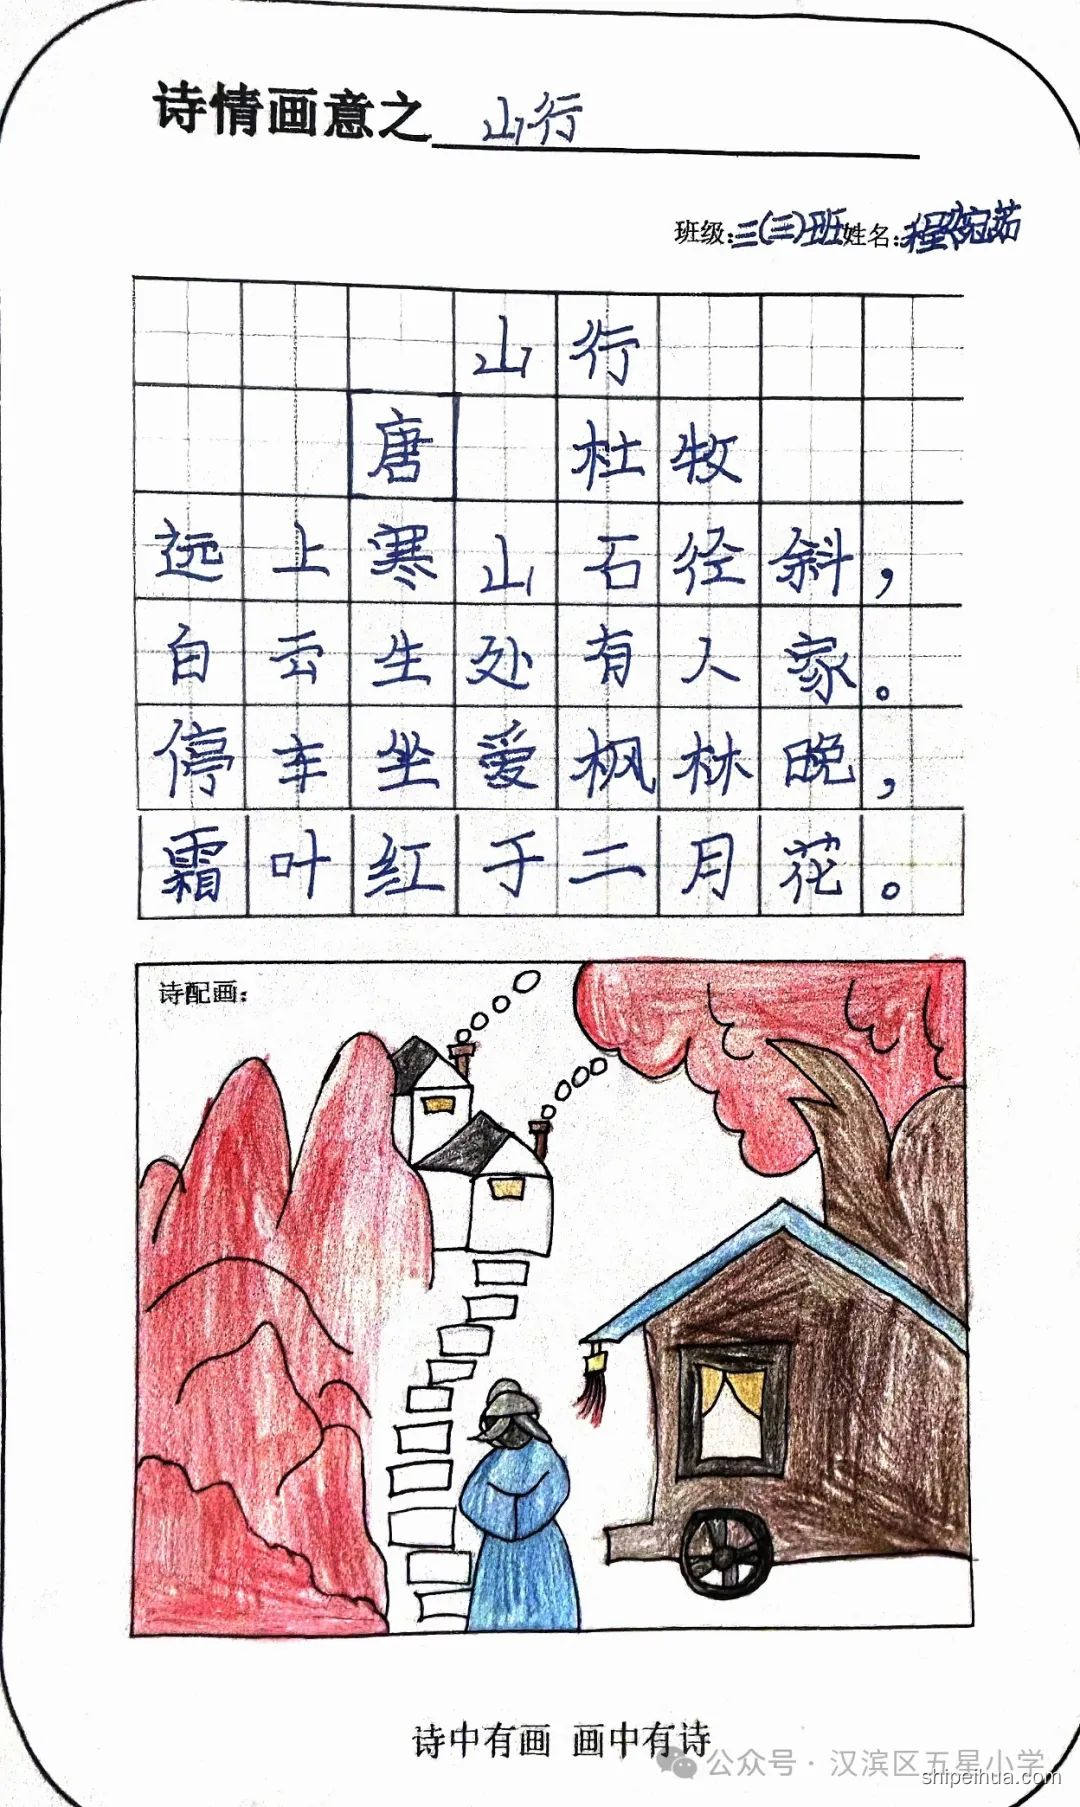 诗情画意之 山行
班级:三(三)班姓名:程婉茹
山行
唐 杜牧
远上寒山石径斜，
白云生处有人家。
停车坐爱枫林晚，
霜叶红于二月花。
诗配画:
诗中有画 画中有诗
公众号·汉滨区五星小学
shipeihua.com